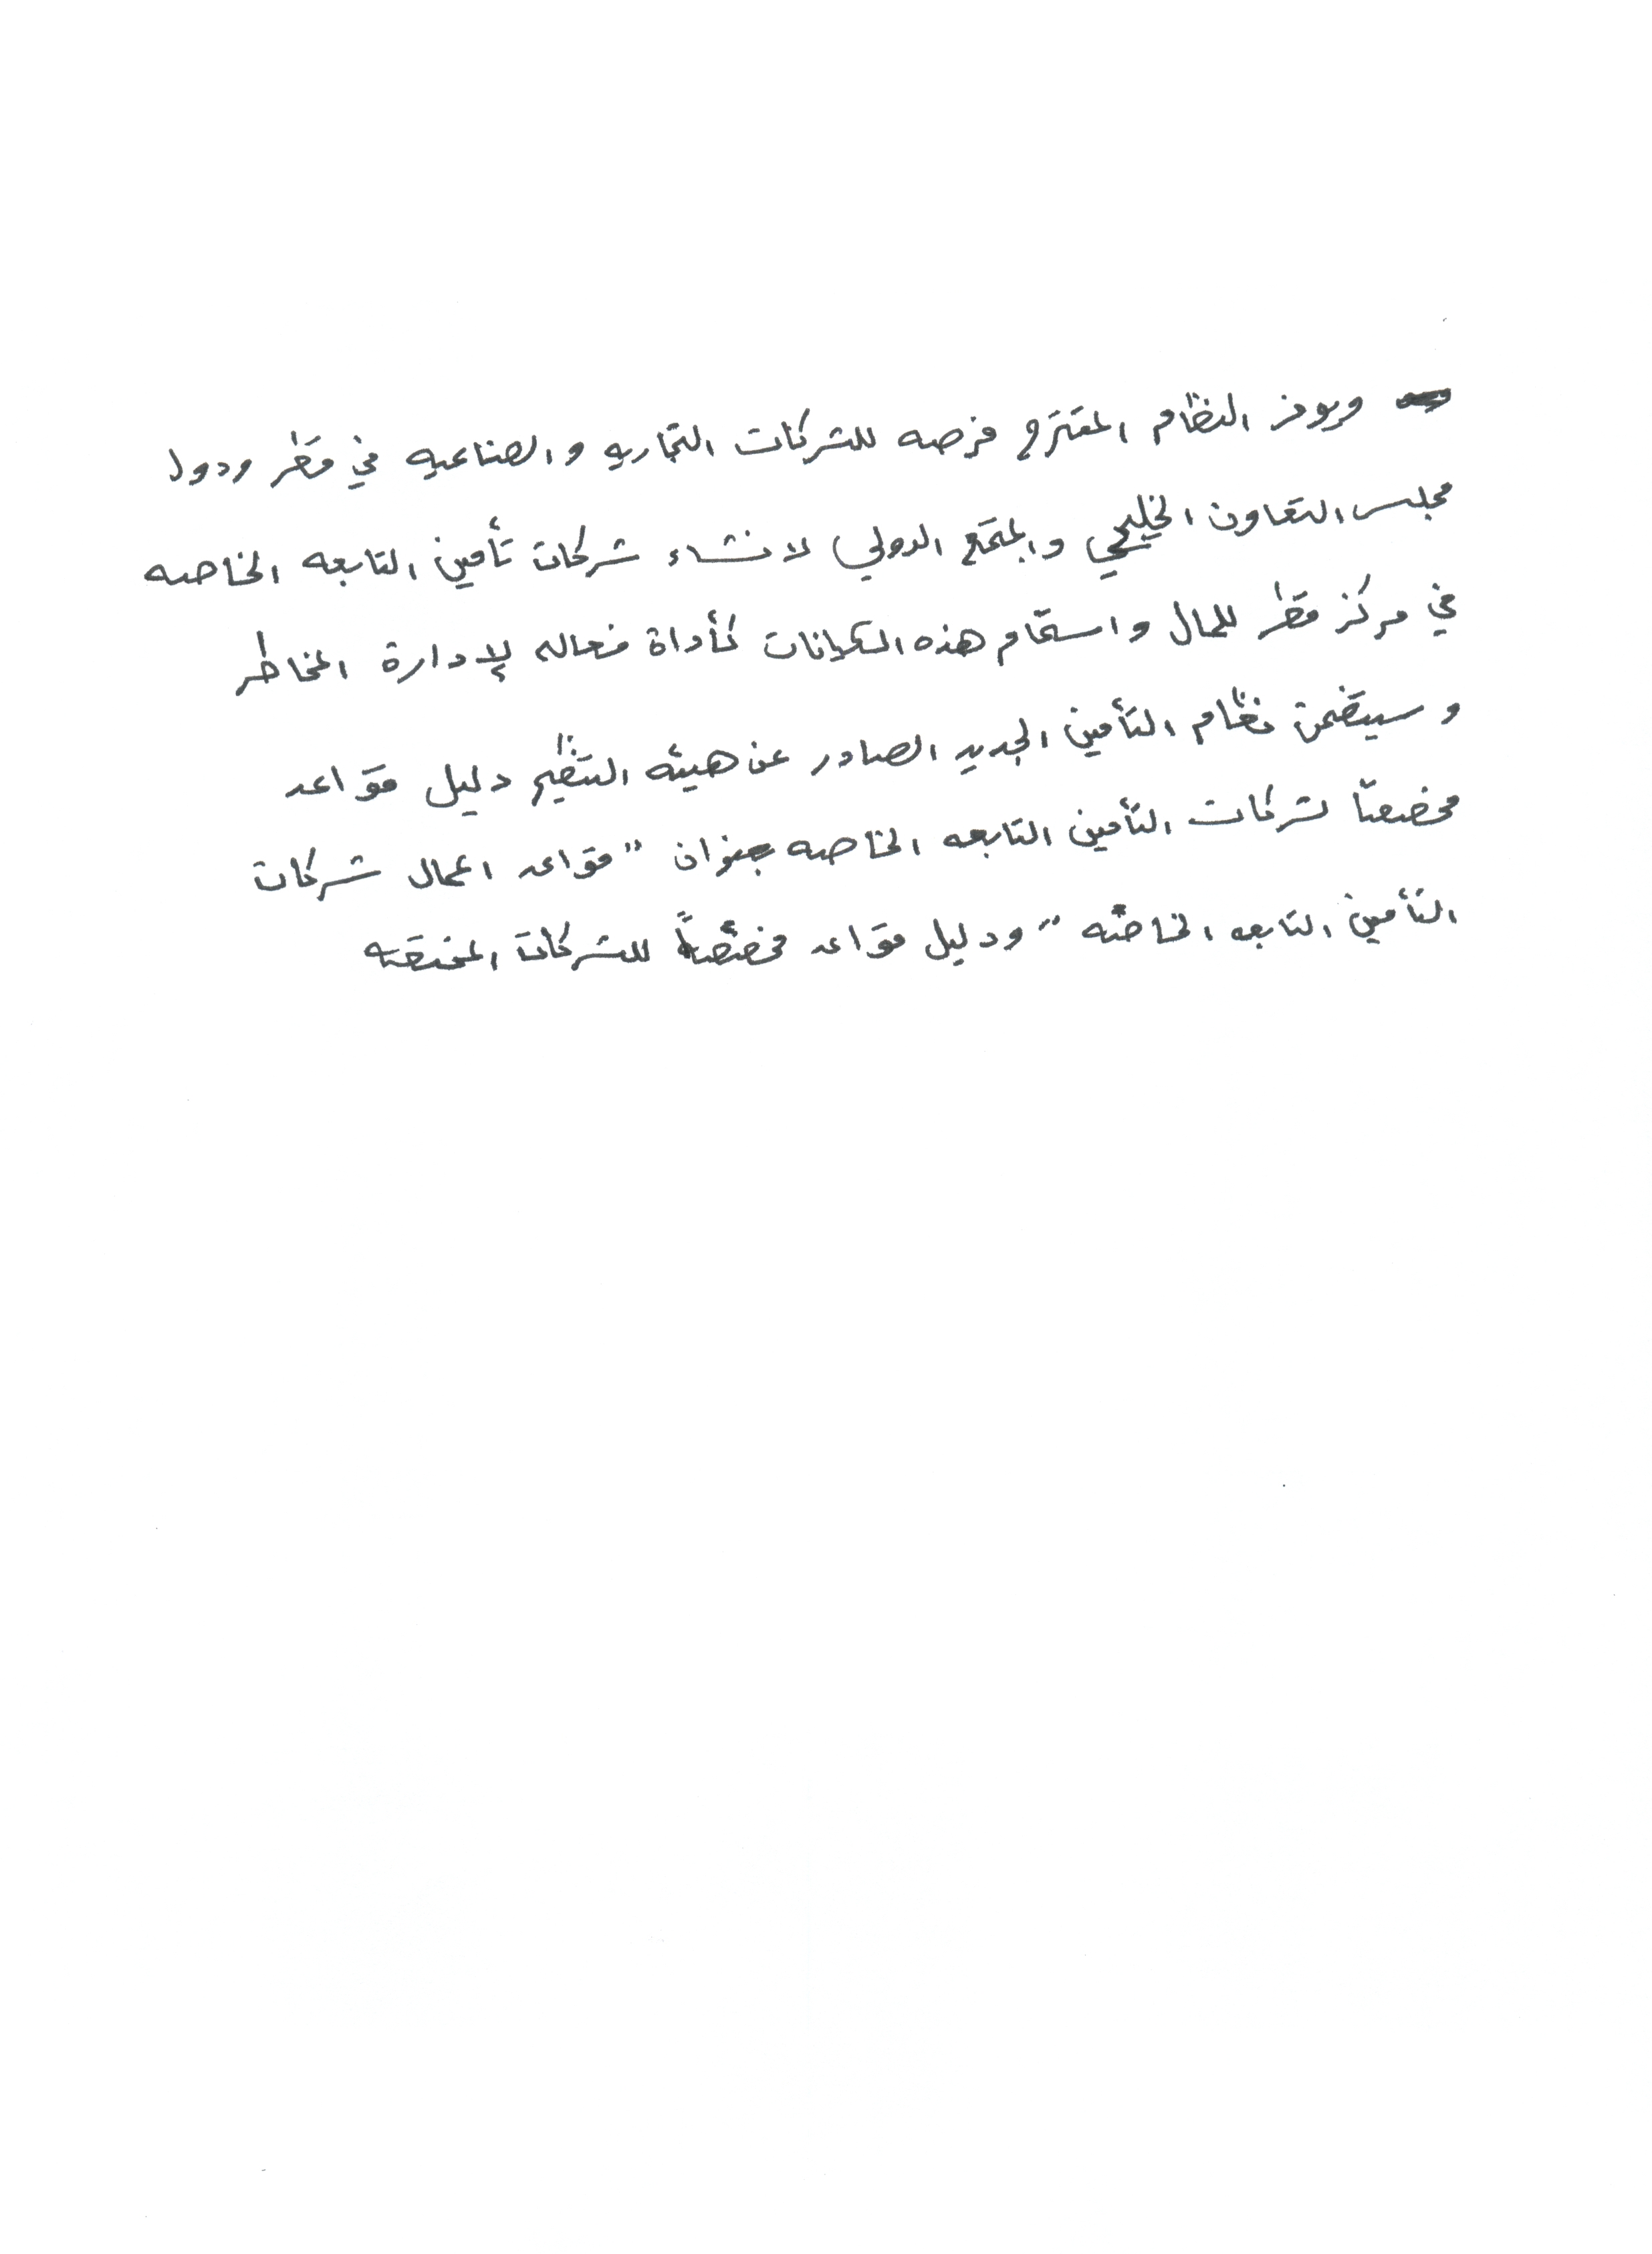 ويوفر النظام المقترح فرصه للشركات التجاريه والصناعيه في قطر ودول
مجلس التعاون الخليجي والمجتمع الدولي لانشاء شركات تأمين التابعه الخاصه
في مركز قطر للمال واستخدام هذه الكيانات كأداة فعاله لإدارة المخاطر
وسيتضمن نظام التأمين الجديد الصادر عن هيئه التنظيم دليل قواعد
مخصصاً لشركات التأمين التابعه الخاصه بعنوان "قواعد اعمال شركات
التأمين التابعه الخاصّه" ودليل قواعد مخصّصاً للشركات